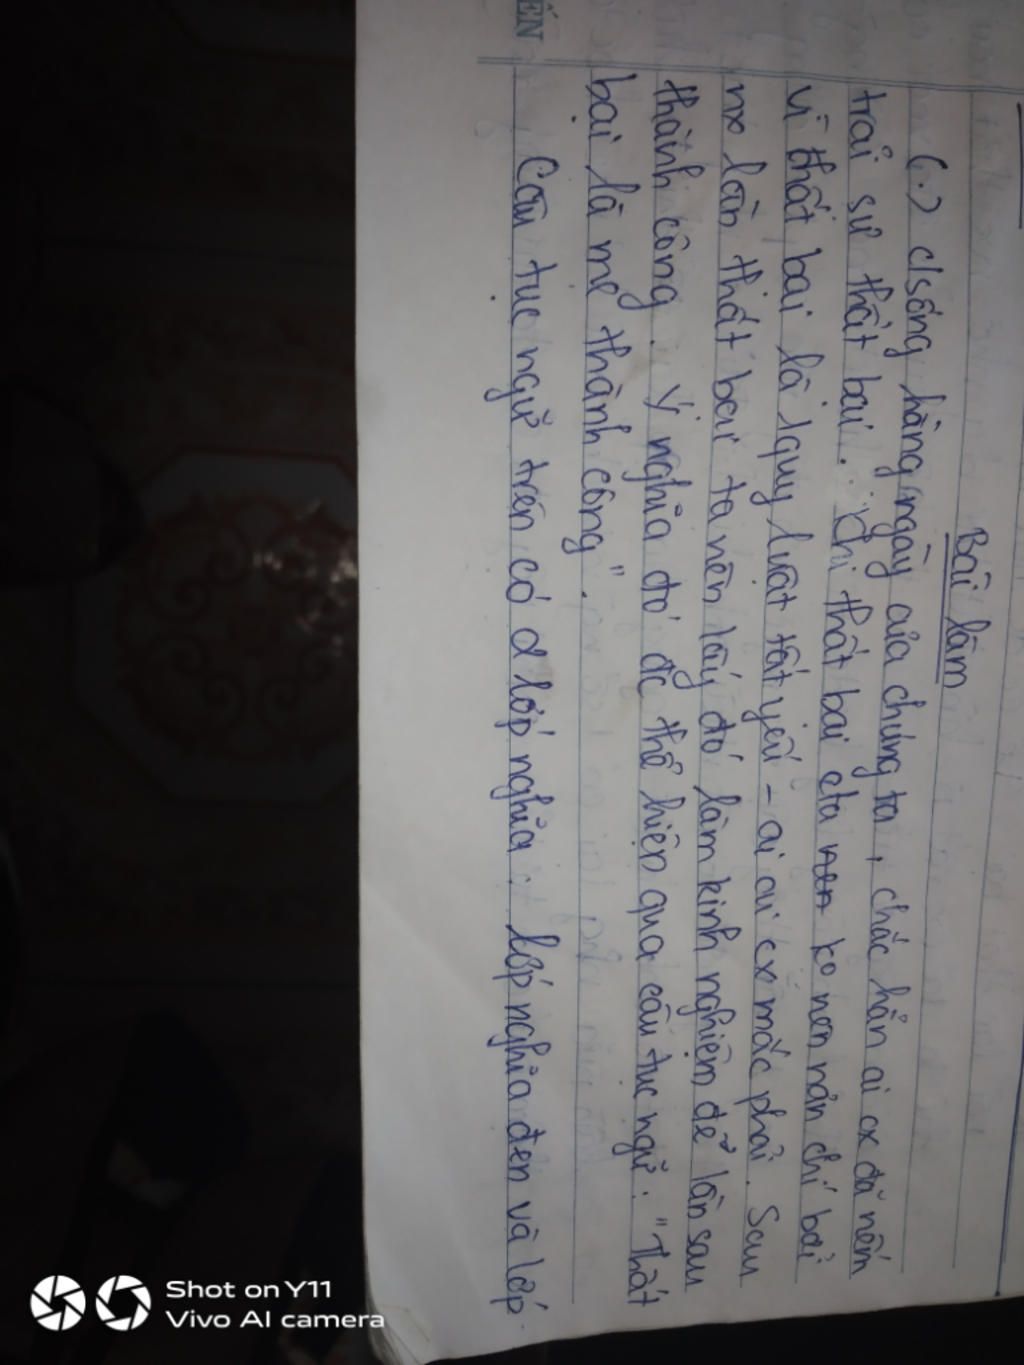 Bài làm
(.) clsống hàng ngày của chúng ta, chắc hẳn ai cx đã nếm
trải sự thất bại. Khi thất bại cta ko nên nản chí bởi
vì thất bại là 1 quy luật tất yếu - ai ai cx mắc phải. Sau
mx lần thất bại ta nên lấy đó làm kinh nghiệm để lần sau
thành công. Ý nghĩa đó đc thể hiện qua câu tục ngữ: "Thất
bại là mẹ thành công".
Câu tục ngữ trên có 2 lớp nghĩa: lớp nghĩa đen và lớp
ẾN
Shot on Y11
Vivo AI camera